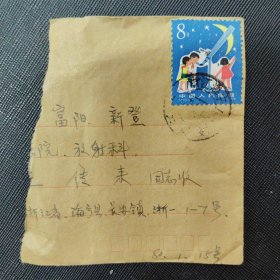 8分
中国人民邮政
富阳 新登
院,放射科
传来 同志收
浙江省 海宁县 长安镇 浙一1-7号
82.1.15寄